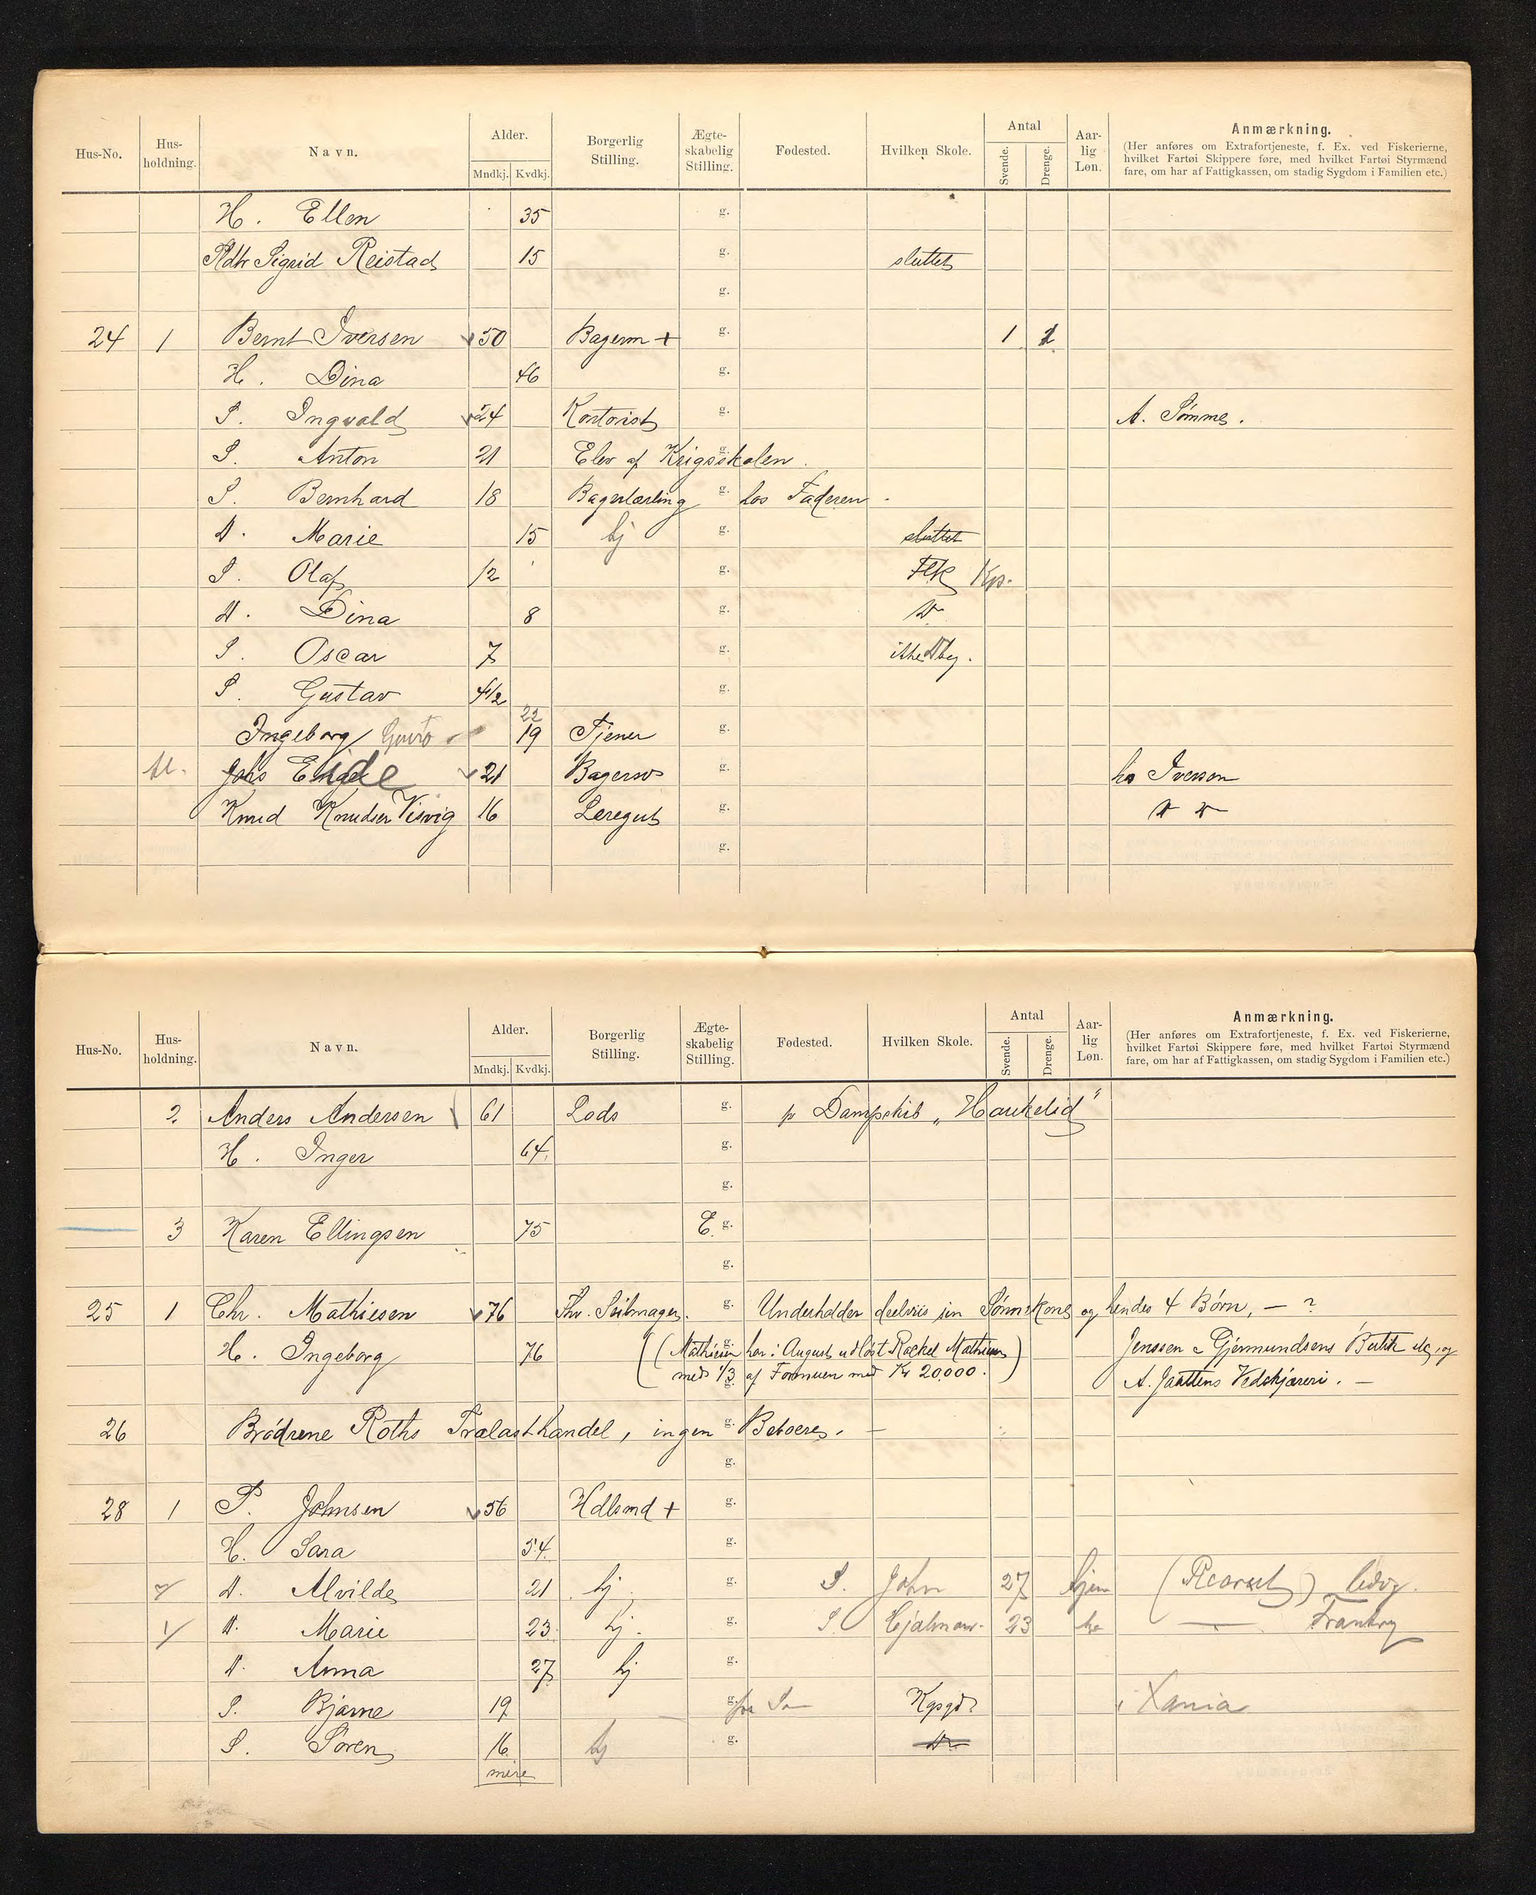 Hus-No. Hus-holdning. Navn. Alder. Mndkj. Kvdkj. Borgerlig Stilling. Ægte-skabelig Stilling. Fødested. Hvilken Skole. Antal Svende. Drenge. Aar-lig Løn. Anmærkning.
(Her anføres om Extrafortjeneste, f. Ex. ved Fiskerierne,
hvilket Fartøi Skippere føre, med hvilket Fartøi Styrmænd
fare, om har af Fattigkassen, om stadig Sygdom i Familien etc.)
H. Ellen 35 g.
Sigrid Reistad 15 g. sluttet
g.
24 1 Bernt Iversen 50 Bagerm + g. 1
H. Dina 46 g.
S. Ingvald 24 Kontorist g. A. Sømme.
S. Anton 21 Elev af Krigsskolen. g.
S. Bernhard 18 Bagerlærling g. hos Faderen.
D. Marie 15 hj g. sluttet
S. Olaf 12 g. Flk Kp.
D. Dina 8 g. D
S. Oscar 7 g. ikke beg.
S. Gustav 4 1/2 g.
Ingeborg 22 19 Tjener g.
fl. Johs Eide 21 Bagersv g. hos Iversen
Knud Knudsen Visvig 16 Læregut g. D D
g.
Hus-No. Hus-holdning. Navn. Alder. Mndkj. Kvdkj. Borgerlig Stilling. Ægte-skabelig Stilling. Fødested. Hvilken Skole. Antal Svende. Drenge. Aar-lig Løn. Anmærkning.
(Her anføres om Extrafortjeneste, f. Ex. ved Fiskerierne,
hvilket Fartøi Skippere føre, med hvilket Fartøi Styrmænd
fare, om har af Fattigkassen, om stadig Sygdom i Familien etc.)
2 Anders Andersen 61 Lods g. p Dampskib „Haukelid"
H. Inger 64 g.
g.
3 Karen Ellingsen 75 E. g.
g.
25 1 Chr. Mathiesen 76 Fhv. Seilmager. g. Underholder delvis sin Sønnekone og hendes 4 Børn, — ?
H. Ingeborg 76 g. (Mathiesen har i August udløst Rachel Mathiesen Jenssen & Gjermundsens Butik og
med 1/3 af Formuen med Kr 20.000.) g. A. Jaattens Vedskjæreri. —
26 Brødrene Roths Trælasthandel, ingen g. Beboere. —
g.
28 1 P. Johnsen 56 Hdlsmd + g.
H. Sara 54 g.
D. Alvilde 21 hj. g. S. John 27 hjem
1/ D. Marie 23 hj. g. S. Hjalmar 23
D. Anna 27 hj g.
S. Bjarne 19 g. Kgsgd i Xania
S. Søren 16 hj g.
mere